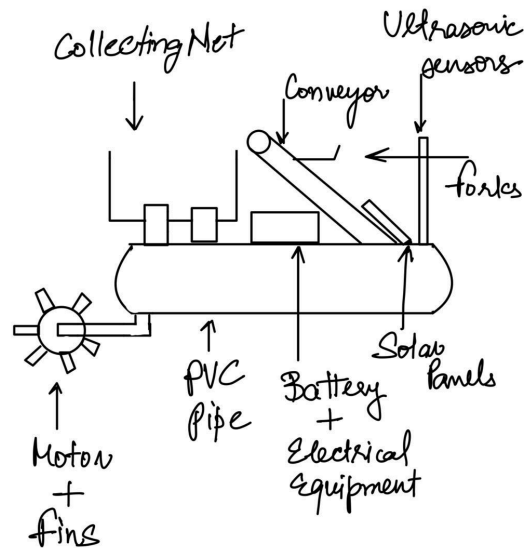 Collecting Net
Ultrasonic
sensors
Conveyor
forks
Solar
Panels
PVC
Pipe
Battery
+
Electrical
Equipment
Motor
+
fins